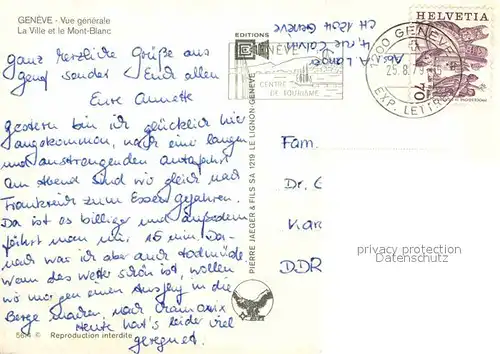 GENÈVE - Vue générale
La Ville et le Mont-Blanc
ganz herzliche Grüße aus
Genf sendet Euch allen
Eure Annette
gestern bin ich glücklich hier
angekommen, nach einer langen
und anstrengenden Autofahrt
am Abend sind wir gleich nach
Frankreich zum Essen gefahren.
Da ist es billiger und außerdem
fährt man nur 15 min. Da-
nach war ich aber auch todmüde.
Wenn das Wetter schön ist, wollen
wir morgen einen Ausflug in die
Berge machen, nach Chamonix
Heute hat's leider viel
geregnet.
5674 © Reproduction interdite
EDITIONS
PIERRE JAEGER & FILS SA 1219 LE LIGNON-GENÈVE
GENÈVE
CENTRE
DE TOURISME
Abs. A. Langer
4, rue Calvin
CH 1204 Genève
1200 GENÈVE
25.8.79
EXP. LETTRES
HELVETIA
70
Fam.
Dr. C
Kar
DDR
privacy protection
Datenschutz